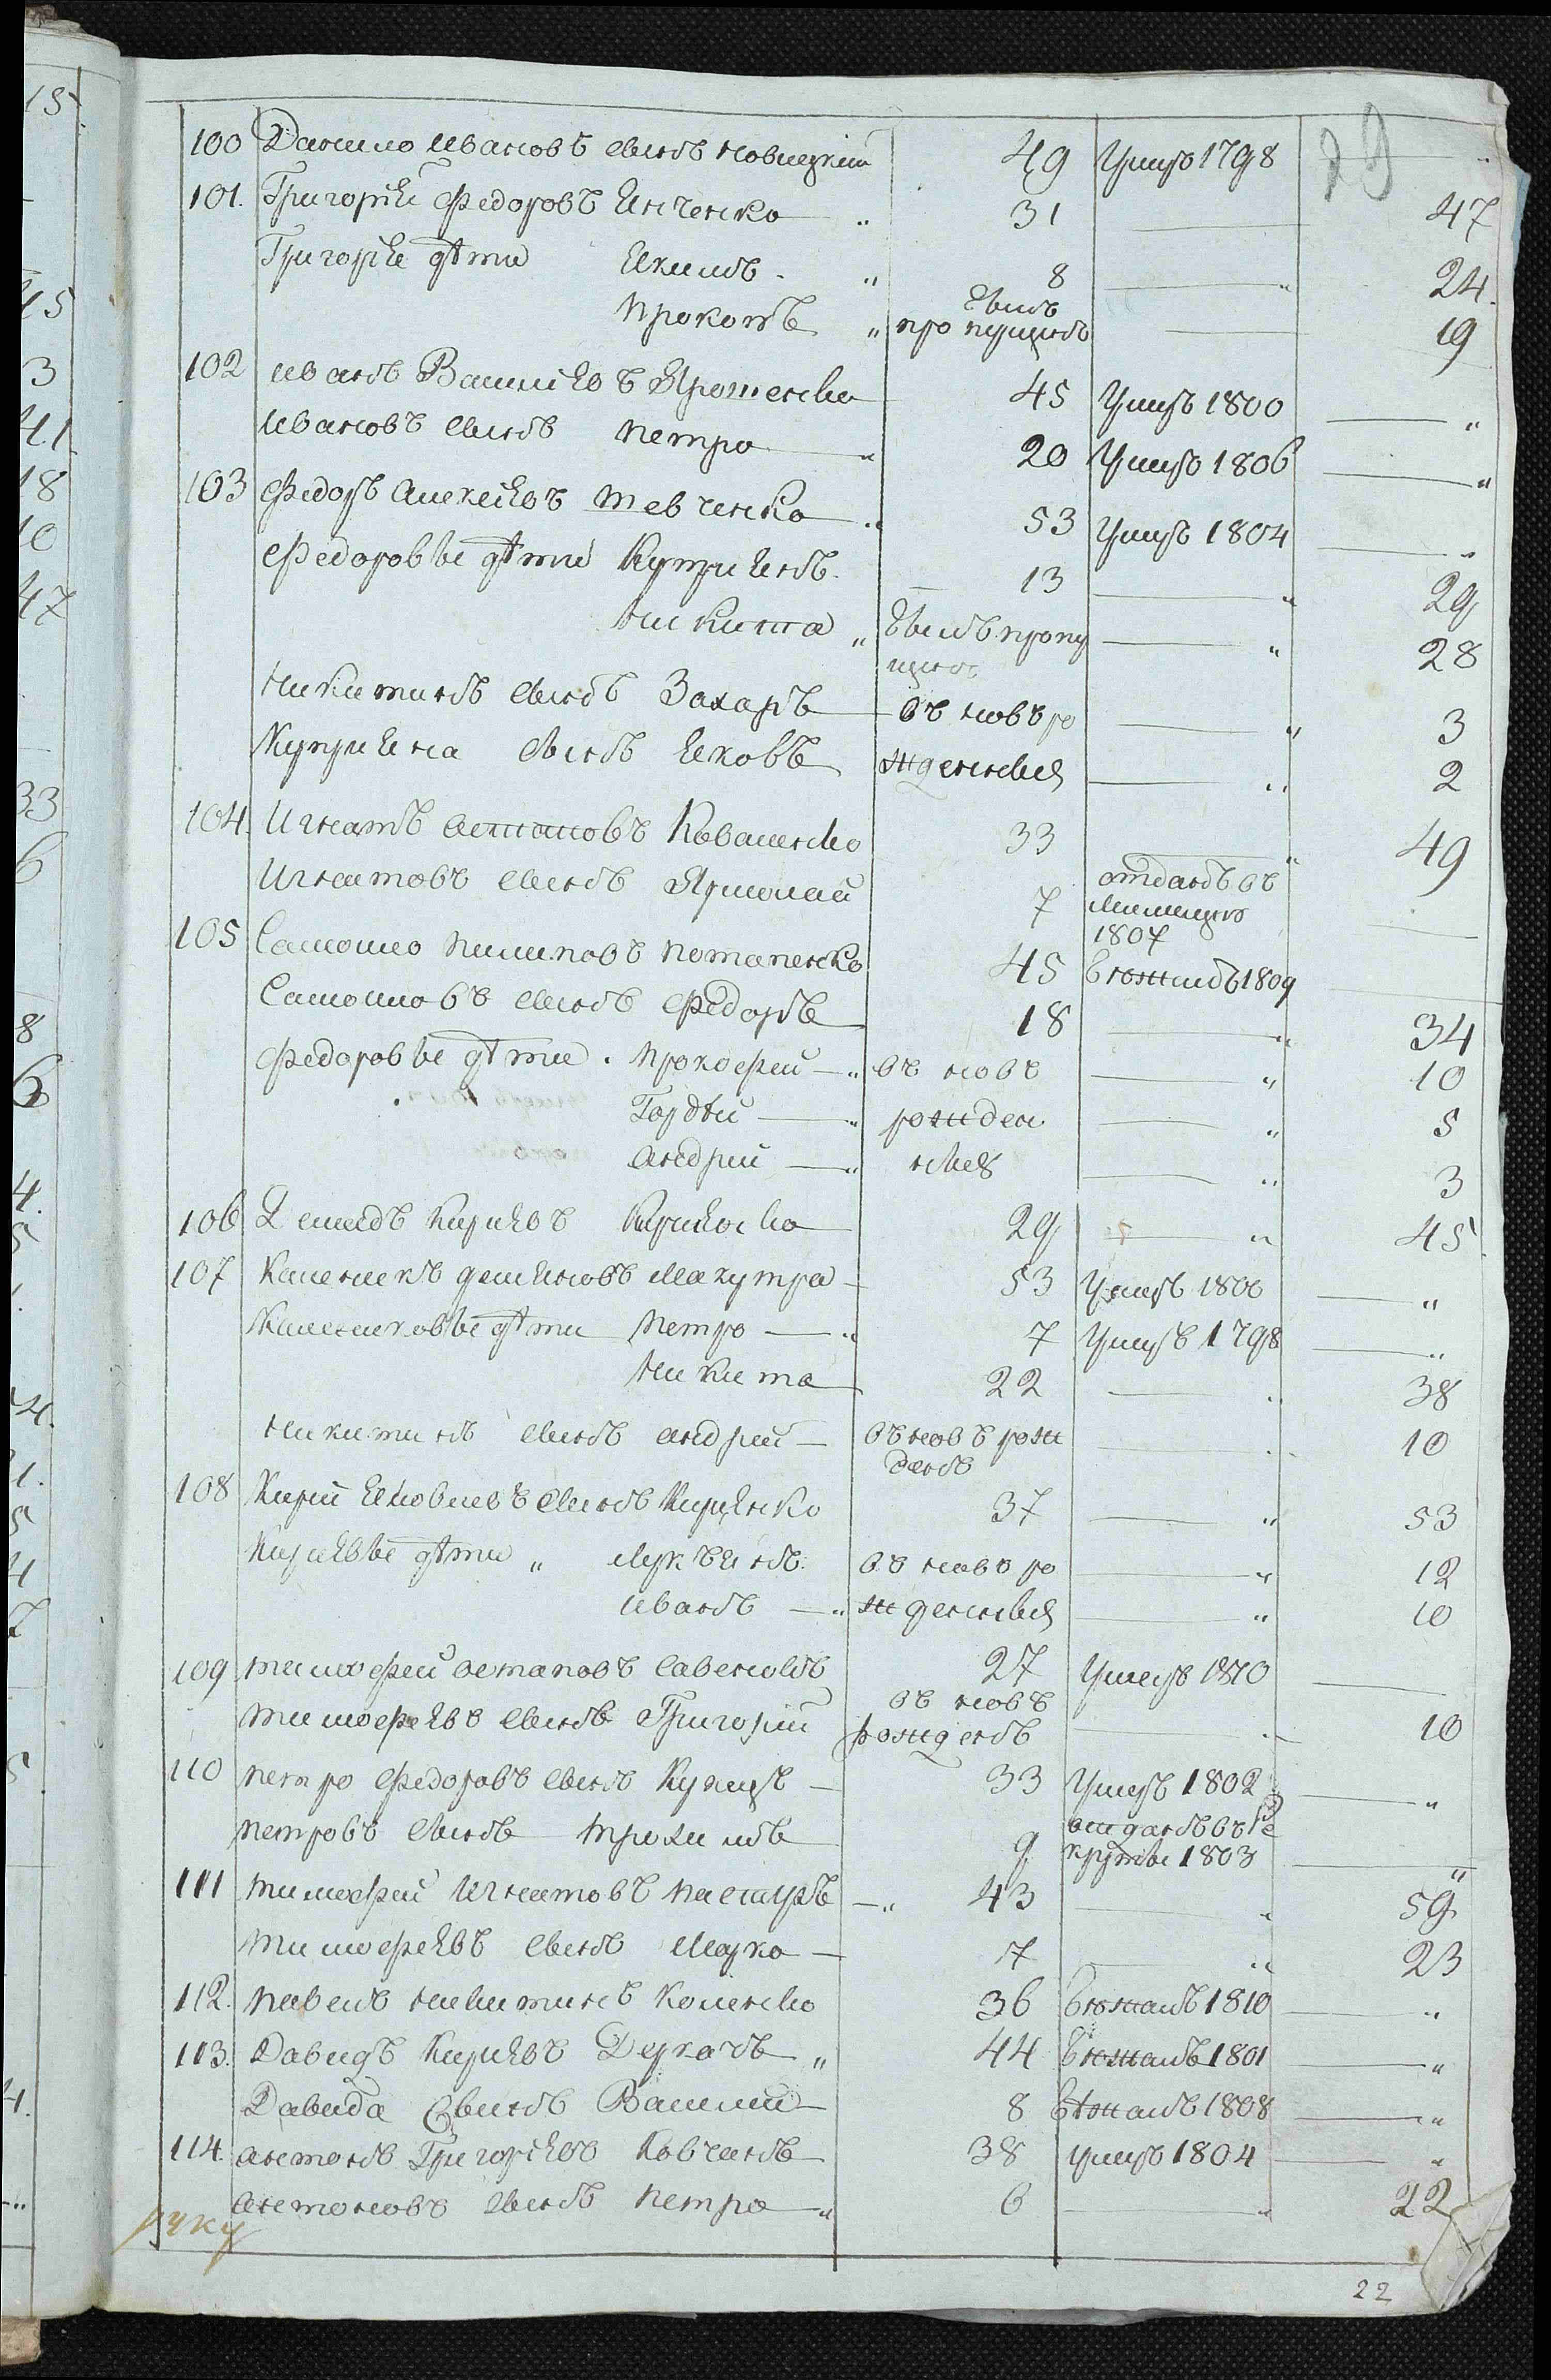 29
100 Данило Ивановъ сынъ Новицкій 49 Умеръ 1798
101. Григорій Федоровъ Янченко 31 — 47
Григорія дѣти Якимъ 8 — 24.
Прокопъ былъ пропущенъ — 19
102 Иванъ Василіевъ Яременко 45 Умеръ 1800 — „
Ивановъ сынъ Петро 20 Умеръ 1806 — „
103 Федоръ Алексѣевъ Шевченко 53 Умеръ 1804 — „
Федоровы дѣти Купріянъ 13 — 29
Никита былъ пропу — 28
щенъ
Никитинъ сынъ Захаръ въ новѣ ро — 3
Купріяна сынъ Яковъ жденныя — 2
104. Игнатъ Остаповъ Коваленко 33 — 49
Игнатовъ сынъ Ярмолай 7 отданъ въ
милицію
1807 —
105 Самойло Пилиповъ Потапенко 45 бѣжалъ 1809 —
Самойловъ сынъ Федоръ 18 — 34
Федоровы дѣти Прокофей въ новѣ — 10
Гордѣй рожден — 5
Андрей ныя — 3
106 Демидъ Киріевъ 29 — 45
107 Каленикъ Деміяновъ Махутра 53 Умеръ 1800 — „
Калениковы дѣти Петро 7 Умеръ 1798 — „
Никита 22 — 38
Никитинъ сынъ Андрей въ новѣ рож — 10
денъ
108 Кирій Яковлевъ сынъ Киріенко 37 — 53
Киріевы дѣти Лукъянъ въ новѣ ро — 12
Иванъ жденныя — 10
109 Тимофей Остаповъ 27 Умеръ 1810 —
въ новѣ
Тимофеевъ сынъ Григорій рожденъ — 10
110 Петро Федоровъ сынъ Купецъ 33 Умеръ 1802 — „
Петровъ сынъ Трохимъ 9 отданъ въ ре
круты 1803 — „
111 Тимофей Игнатовъ Пастуръ 43 — 59
Тимофеевъ сынъ Марко 7 — 23
112. Павелъ Никитинъ Коленко 36 бѣжалъ 1810 — „
113. Давидъ Киріевъ Деркачъ 44 бѣжалъ 1801 — „
Давида сынъ Василій 8 бѣжалъ 1808 — „
114. Антонъ Григоріевъ Ковчанъ 38 умеръ 1804 — „
Антоновъ сынъ Петро 6 — 22
руку
22